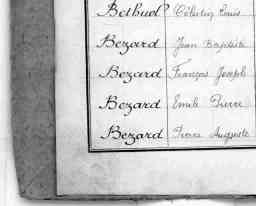 Bethud Célestin Louis
Bezard Jean Baptiste
Bezard François Joseph
Bezard Emile Pierre
Bezard Pierre Auguste